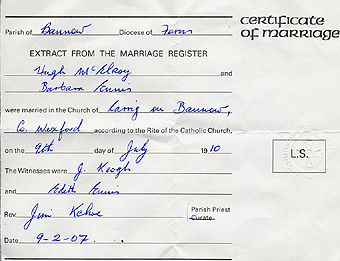 certificate
of marriage
Parish of Bannow Diocese of Ferns
EXTRACT FROM THE MARRIAGE REGISTER
Hugh McElroy and
Barbara Ennis
were married in the Church of Carrig on Bannow,
Co. Wexford according to the Rite of the Catholic Church,
on the 9th day of July 1910
The Witnesses were J. Keogh
and Edith Ennis
L.S.
Rev. Jim Kehoe Parish Priest
Curate
Date 9-2-07.